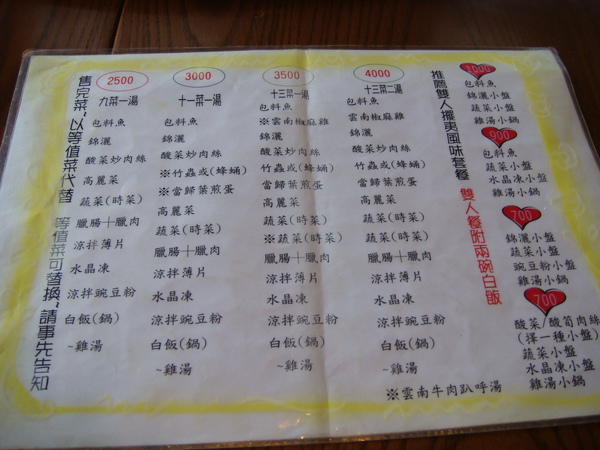 售完菜，以等值菜代替 等值菜可替換，請事先告知
2500
九菜一湯
包料魚
錦灑
酸菜炒肉絲
高麗菜
蔬菜(時菜)
臘腸╱臘肉
涼拌薄片
水晶凍
涼拌豌豆粉
白飯(鍋)
~雞湯
3000
十一菜一湯
包料魚
錦灑
酸菜炒肉絲
※竹蟲或(蜂蛹)
※當歸葉煎蛋
高麗菜
蔬菜(時菜)
臘腸╱臘肉
涼拌薄片
水晶凍
涼拌豌豆粉
白飯(鍋)
~雞湯
3500
十三菜一湯
包料魚
※雲南椒麻雞
錦灑
酸菜炒肉絲
竹蟲或(蜂蛹)
當歸葉煎蛋
高麗菜
蔬菜(時菜)
※蔬菜(時菜)
臘腸╱臘肉
涼拌薄片
水晶凍
涼拌豌豆粉
白飯(鍋)
~雞湯
4000
十三菜二湯
包料魚
雲南椒麻雞
錦灑
酸菜炒肉絲
竹蟲或(蜂蛹)
當歸葉煎蛋
高麗菜
蔬菜(時菜)
蔬菜(時菜)
臘腸╱臘肉
涼拌薄片
水晶凍
涼拌豌豆粉
白飯(鍋)
~雞湯
※雲南牛肉趴呼湯
推薦雙人擺夷風味套餐 雙人餐附兩碗白飯
1000
包料魚
錦灑小盤
蔬菜小盤
雞湯小鍋
900
包料魚
蔬菜小盤
水晶凍小盤
雞湯小鍋
700
錦灑小盤
蔬菜小盤
豌豆粉小盤
雞湯小鍋
700
酸菜/酸筍肉絲
(擇一種小盤)
蔬菜小盤
水晶凍小盤
雞湯小鍋